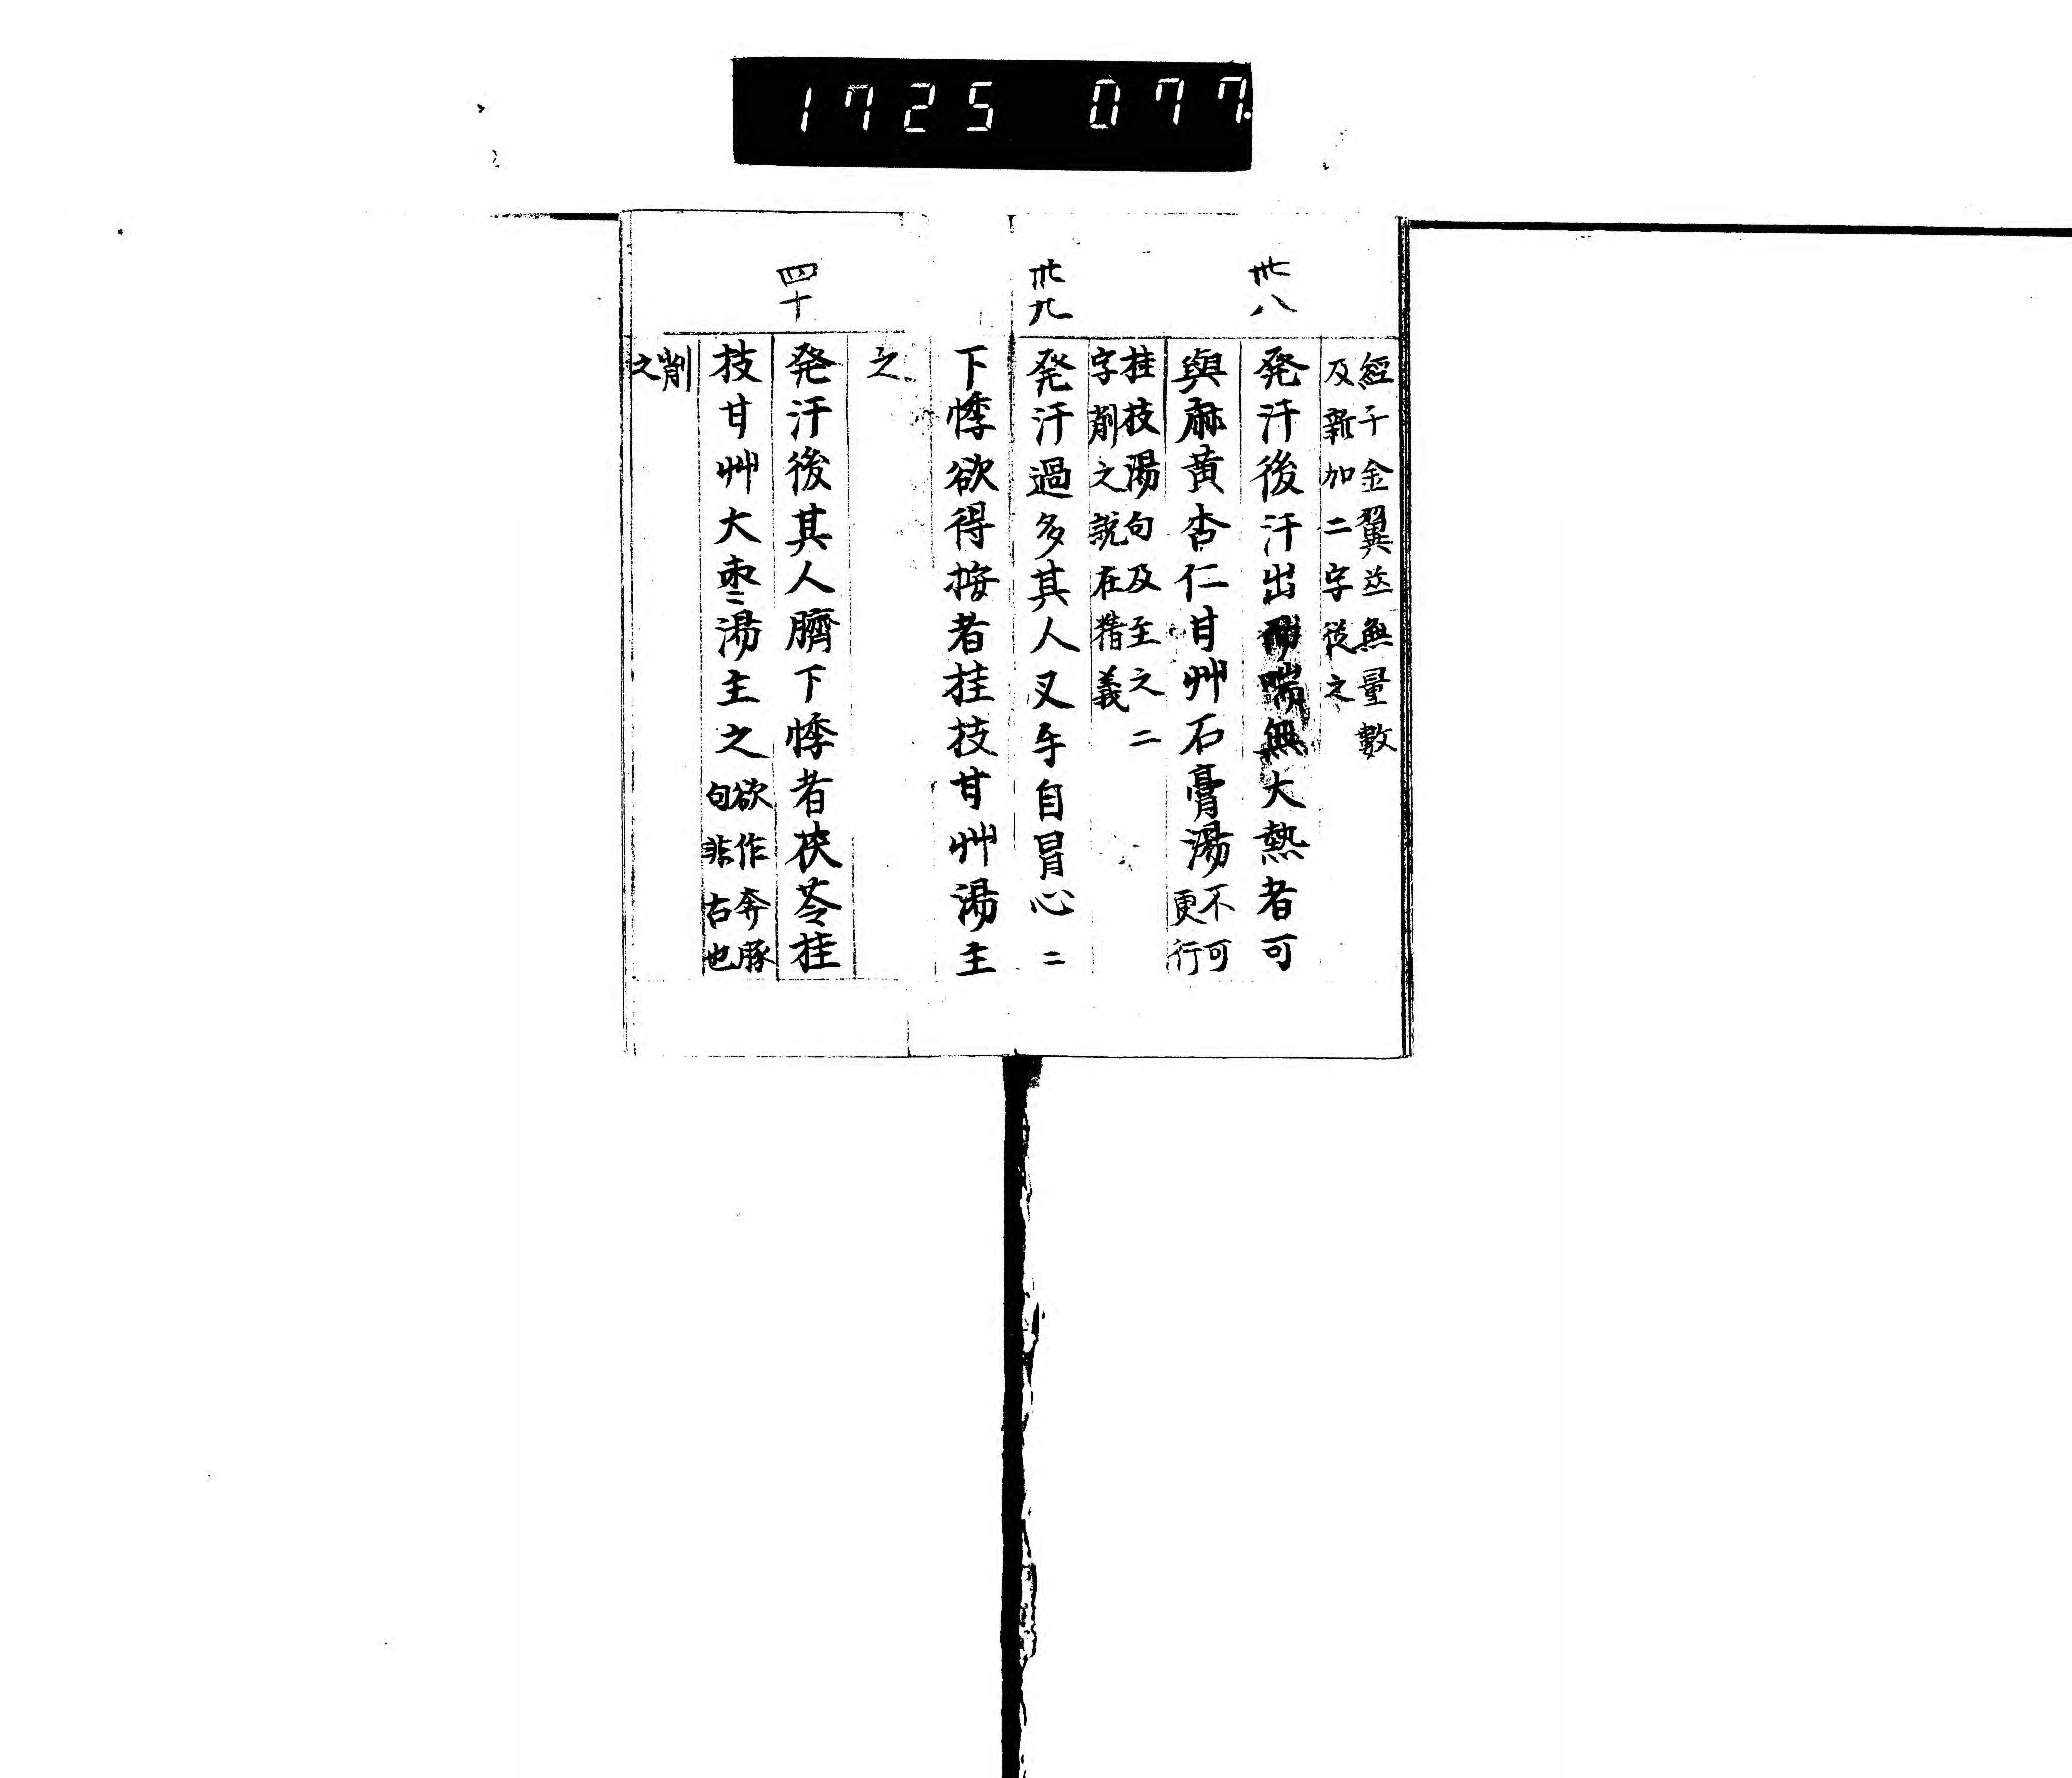 1725 077.
經千金翼並無量數
及新加二字從之
卅八
発汗後汗出喘無大熱者可
與麻黄杏仁甘艸石膏湯不可
更行
桂枝湯句及至之二
字削之説在精義
卅九
発汗過多其人叉手自冒心二
下悸欲得按者桂枝甘艸湯主
之
四十
発汗後其人臍下悸者茯苓桂
枝甘艸大枣湯主之欲作奔豚
句非古也
削
之